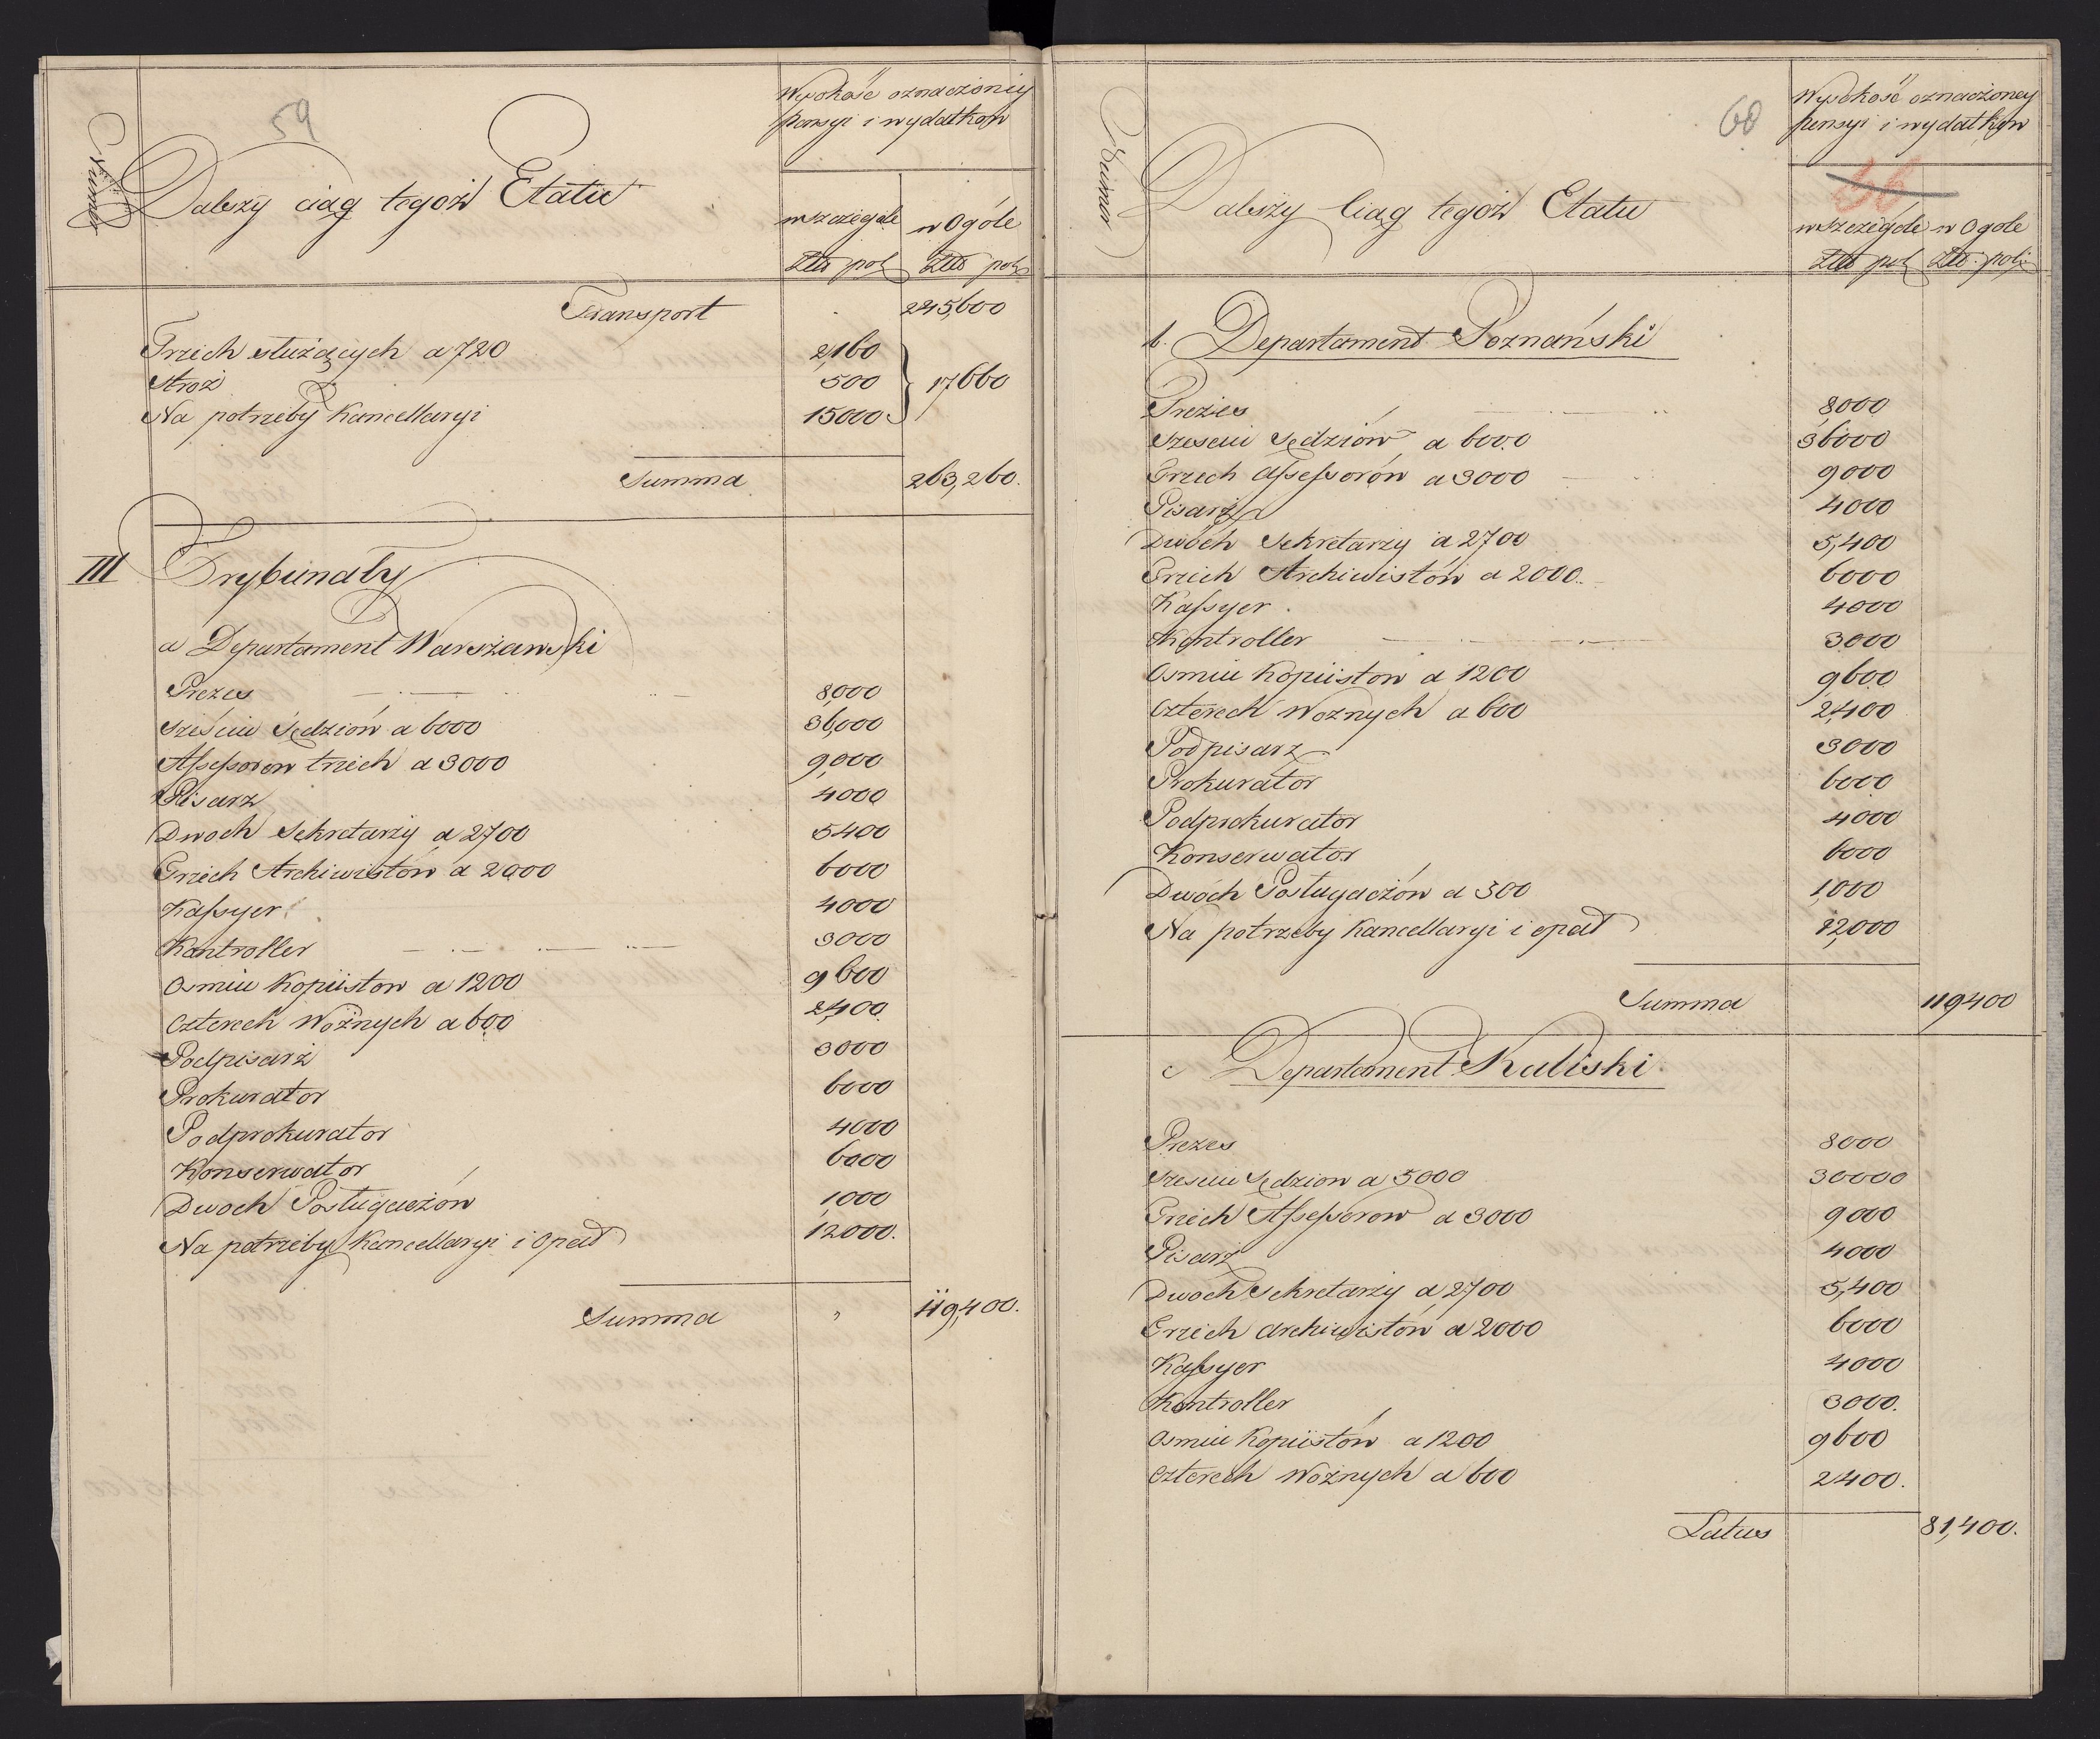 59
Numer
Dalszy ciąg tegoż Etatu
Wysokość oznaczoney
pensyi i wydatkow
w szczególe w Ogóle
Złt pol Złt pol
Transport 245,600
Trzech służących a 720 2,160
Stroż 500 17660
Na potrzeby Kancellaryi 15000
Summa 263,260.
III Trybunały
a Departament Warszawski
Prezes 8,000
Sześciu Sędziów a 6000 36,000
Assessorow trzech a 3000 9,000
Pisarz 4000
Dwoch Sekretarzy a 2700 5400
Trzech Archiwistów a 2000 6000
Kassyer 4000
Kontroller 3000
Osmiu Kopiistow a 1200 9600
Czterech Woźnych a 600 2,400
Podpisarz 3000
Prokurator 6000
Podprokurator 4000
Konserwator 6000
Dwoch Posługaczów 1,000
Na potrzeby Kancellaryi i Opał 12000.
Summa " 119,400.
60
Numer
Dalszy Ciąg tegoż Etatu
Wysokość oznaczoney
pensyi i wydatkow
36
w szczególe w Ogole
Złt pol Złt. pol:
b. Departament Poznański
Prezes 8000
Szesciu Sędziów a 6000 36000
Trzech Assessorów a 3000 9000
Pisarz 4000
Dwóch Sekretarzy a 2700 5,400
Trzech Archiwistów a 2000. 6000
Kassyer. 4000
Kontroller 3000
Osmiu Kopiistow a 1200 9600
Czterech Woznych a 600 2,400
Podpisarz 3000
Prokurator 6000
Podprokurator 4000
Konserwator 6000
Dwóch Posługaczów a 500 1,000
Na potrzeby Kancellaryi i opał 12,000
Summa 119400
c Departament Kaliski
Prezes 8000
Szesciu Sędziow a 5000 30000
Trzech Assessorow a 3000 9000
Pisarz 4000
Dwoch Sekretarzy a 2700 5,400
Trzech archiwistów a 2000 6000
Kassyer 4000
Kontroller 3000.
Osmiu Kopiistów a 1200 9600
Czterech Woźnych a 600 2400.
Latus 81,400.